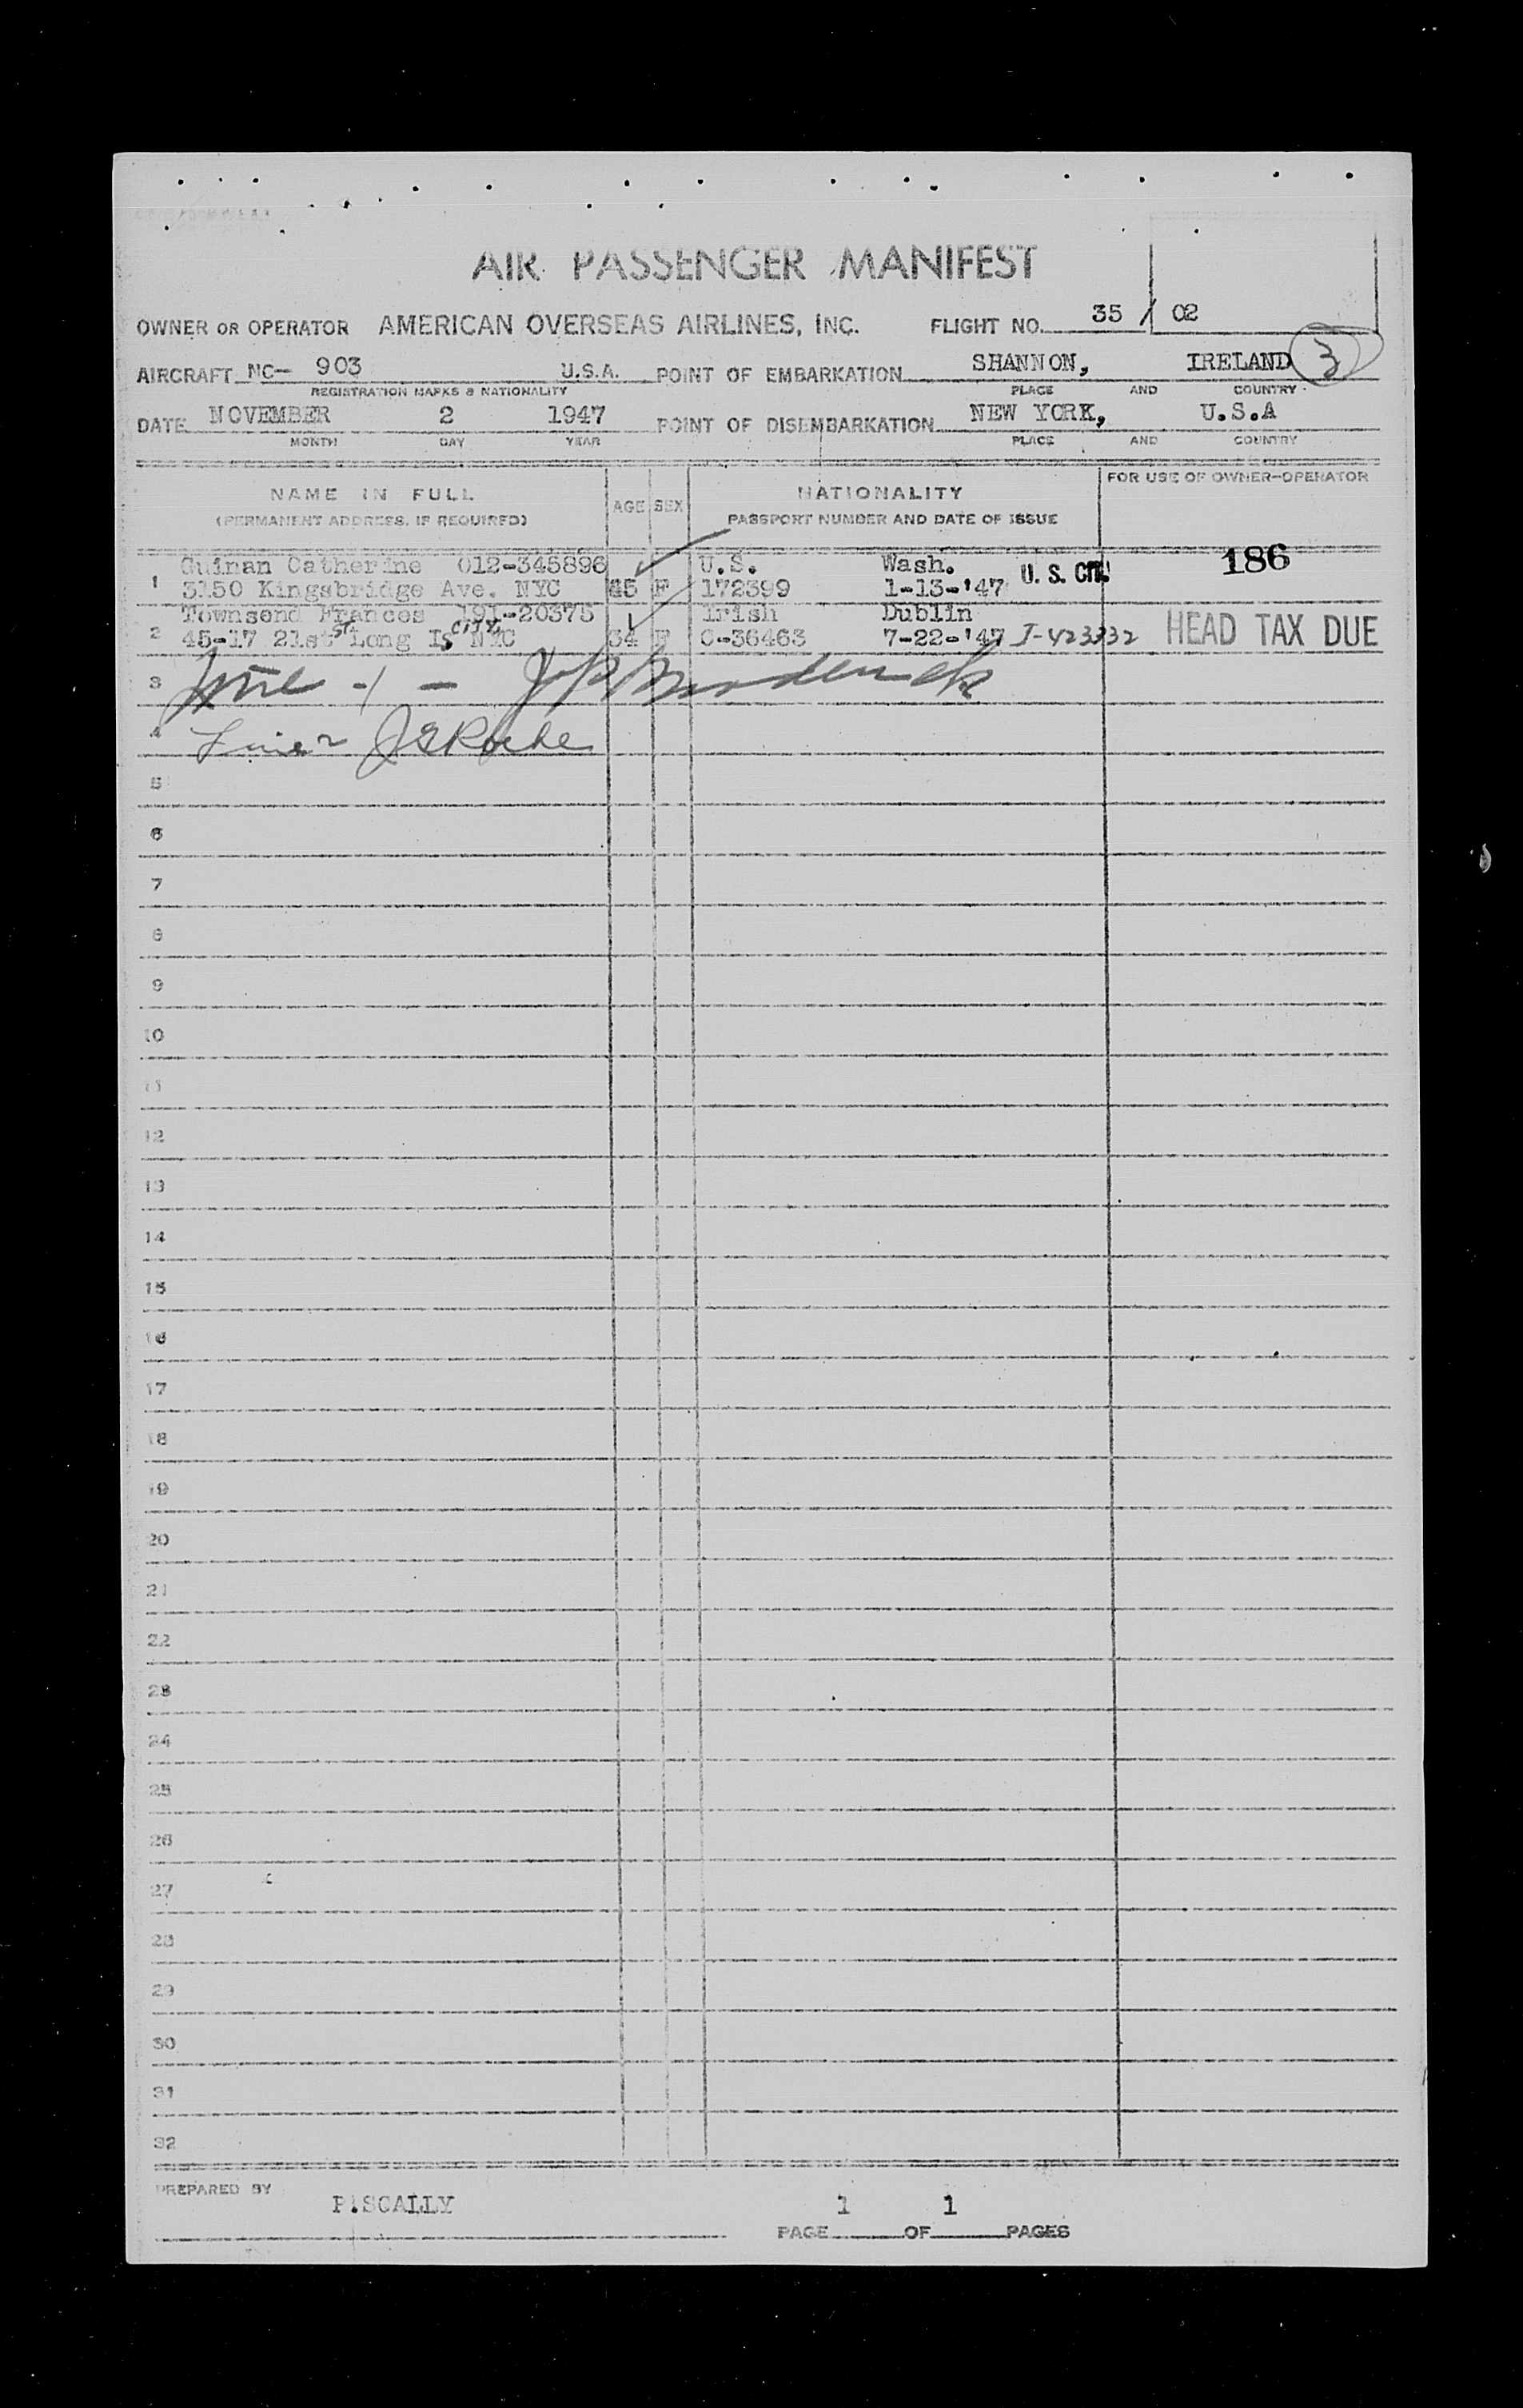 AIR PASSENGER MANIFEST
OWNER OR OPERATOR AMERICAN OVERSEAS AIRLINES, INC. FLIGHT NO. 35 / 02
AIRCRAFT NC- 903 U.S.A. POINT OF EMBARKATION SHANNON, IRELAND 3
REGISTRATION MARKS & NATIONALITY PLACE AND COUNTRY
DATE NOVEMBER 2 1947 POINT OF DISEMBARKATION NEW YORK, U.S.A
MONTH DAY YEAR PLACE AND COUNTRY
NAME IN FULL AGE SEX NATIONALITY FOR USE OF OWNER-OPERATOR
(PERMANENT ADDRESS, IF REQUIRED) PASSPORT NUMBER AND DATE OF ISSUE
Guinan Catherine 012-345896 U.S. Wash. U. S. CIT. 186
1 3150 Kingsbridge Ave. NYC 45 F 172399 1-13-'47
Townsend Frances 191-20375 Irish Dublin
2 45-17 21st St Long Is City NYC 34 F C-36463 7-22-'47 I-423332 HEAD TAX DUE
3 Line -1-
4 Line 2 J E Roche
5
6
7
8
9
10
11
12
13
14
15
16
17
18
19
20
21
22
23
24
25
26
27
28
29
30
31
32
PREPARED BY P.SCALLY
PAGE 1 OF 1 PAGES